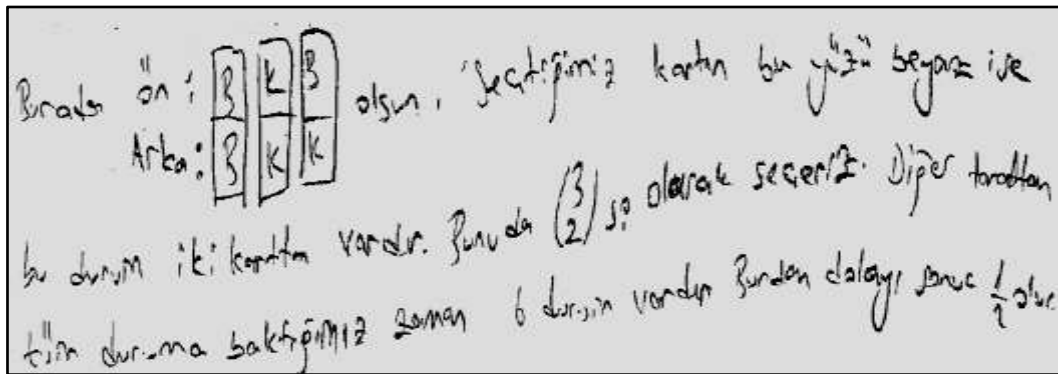 Burada ön: B K B olsun. Seçtiğimiz kartın bu yüzü beyaz ise
Arka: B K K
bu durum iki kartta vardır. Bunuda (3 2) si olarak seçeriz. Diğer taraftan
tüm duruma baktığımız zaman 6 durum vardır Bundan dolayı sonuc 1/2 olur